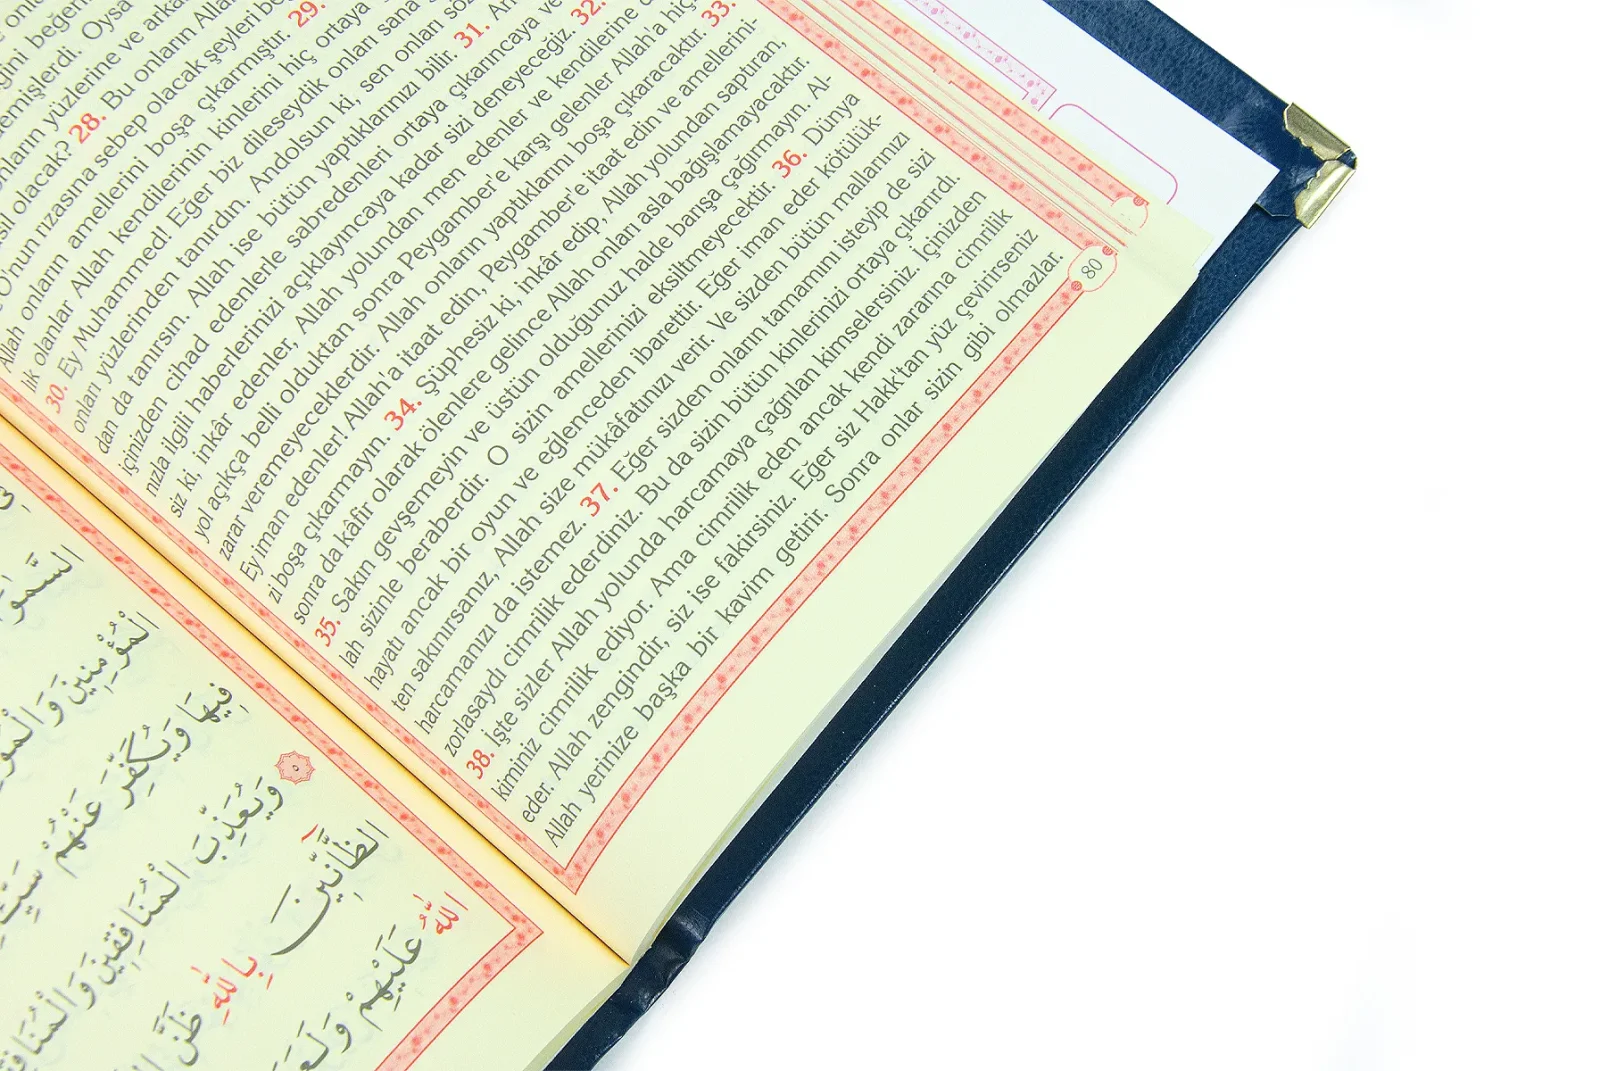 ğini beğen
emişlerdi. Oysa
onların yüzlerine ve arka
sıl olacak? 28. Bu onların Allah
O'nun rızasına sebep olacak şeyleri be
Allah onların amellerini boşa çıkarmıştır. 29.
lık olanlar Allah kendilerinin kinlerini hiç ortaya
30. Ey Muhammed! Eğer biz dileseydik onları sana
onları yüzlerinden tanırdın. Andolsun ki, sen onları söz
dan da tanırsın. Allah ise bütün yaptıklarınızı bilir. 31. An
içinizden cihad edenlerle sabredenleri ortaya çıkarıncaya ve
nızla ilgili haberlerinizi açıklayıncaya kadar sizi deneyeceğiz. 32.
siz ki, inkâr edenler, Allah yolundan men edenler ve kendilerine
yol açıkça belli olduktan sonra Peygamber'e karşı gelenler Allah'a hiç
zarar veremeyeceklerdir. Allah onların yaptıklarını boşa çıkaracaktır. 33.
Ey iman edenler! Allah'a itaat edin, Peygamber'e itaat edin ve amellerini-
zi boşa çıkarmayın. 34. Şüphesiz ki, inkâr edip, Allah yolundan saptıran,
sonra da kâfir olarak ölenlere gelince Allah onları asla bağışlamayacaktır.
35. Sakın gevşemeyin ve üstün olduğunuz halde barışa çağırmayın. Al-
lah sizinle beraberdir. O sizin amellerinizi eksiltmeyecektir. 36. Dünya
hayatı ancak bir oyun ve eğlenceden ibarettir. Eğer iman eder kötülük-
ten sakınırsanız, Allah size mükâfatınızı verir. Ve sizden bütün mallarınızı
harcamanızı da istemez. 37. Eğer sizden onların tamamını isteyip de sizi
zorlasaydı cimrilik ederdiniz. Bu da sizin bütün kinlerinizi ortaya çıkarırdı.
38. İşte sizler Allah yolunda harcamaya çağrılan kimselersiniz. İçinizden
kiminiz cimrilik ediyor. Ama cimrilik eden ancak kendi zararına cimrilik
eder. Allah zengindir, siz ise fakirsiniz. Eğer siz Hakk'tan yüz çevirirseniz
Allah yerinize başka bir kavim getirir. Sonra onlar sizin gibi olmazlar.
80
السَّمٰوَا
الْمُؤْمِنِينَ وَالْمُؤ
فِيهَا وَيُكَفِّرَ عَنْهُمْ سَيِّـ
٥ وَيُعَذِّبَ الْمُنَافِقِينَ وَالْمُنَافِ
الظَّٓانِّينَ بِاللّٰهِ ظَنَّ
اللّٰهُ عَلَيْهِمْ وَلَعَـ